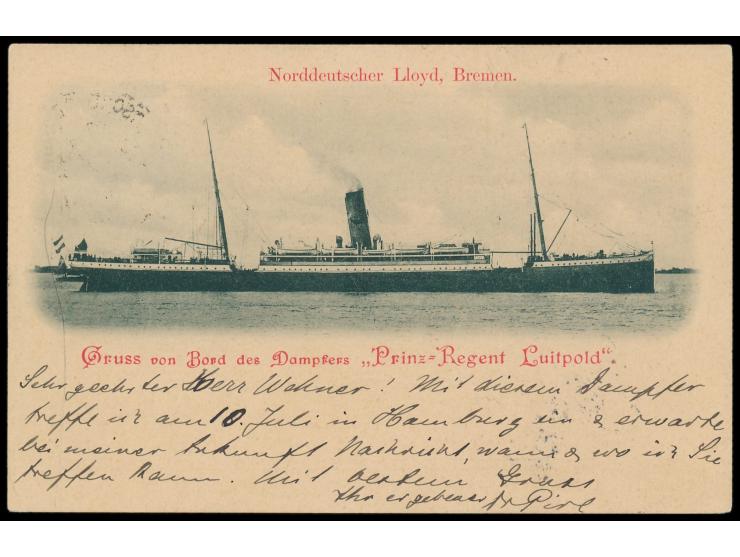 Norddeutscher Lloyd, Bremen.
Gruss von Bord des Dampfers „Prinz-Regent Luitpold“.
Sehr geehrter Herr Wehner! Mit diesem Dampfer
treffe ich am 10. Juli in Hamburg ein & erwarte
bei meiner Ankunft Nachricht, wann & wo ich Sie
treffen kann. Mit bestem Gruss
Ihr ergebener